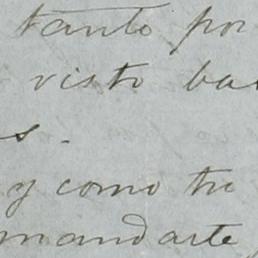 tanto por
visto ba
s.
y como tu
mandarte